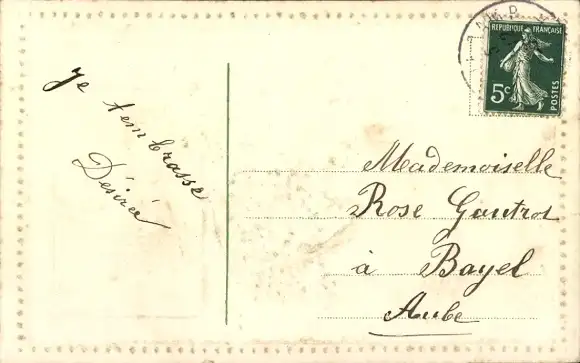 Je t'embrasse
Désirée
REPUBLIQUE FRANÇAISE
5c
POSTES
Mademoiselle
Rose Gautrot
à Bayel
Aube